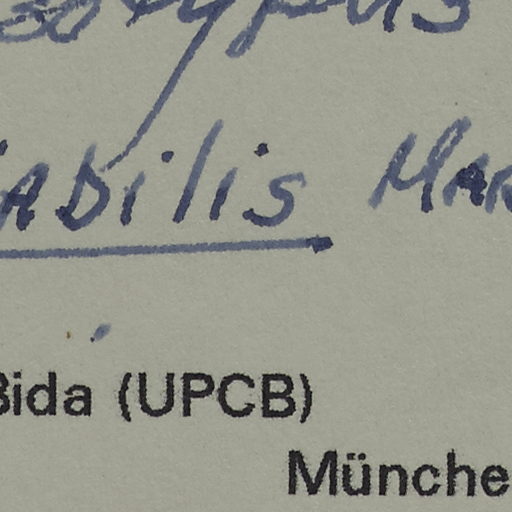 abilis Mar
Bida (UPCB)
Münche